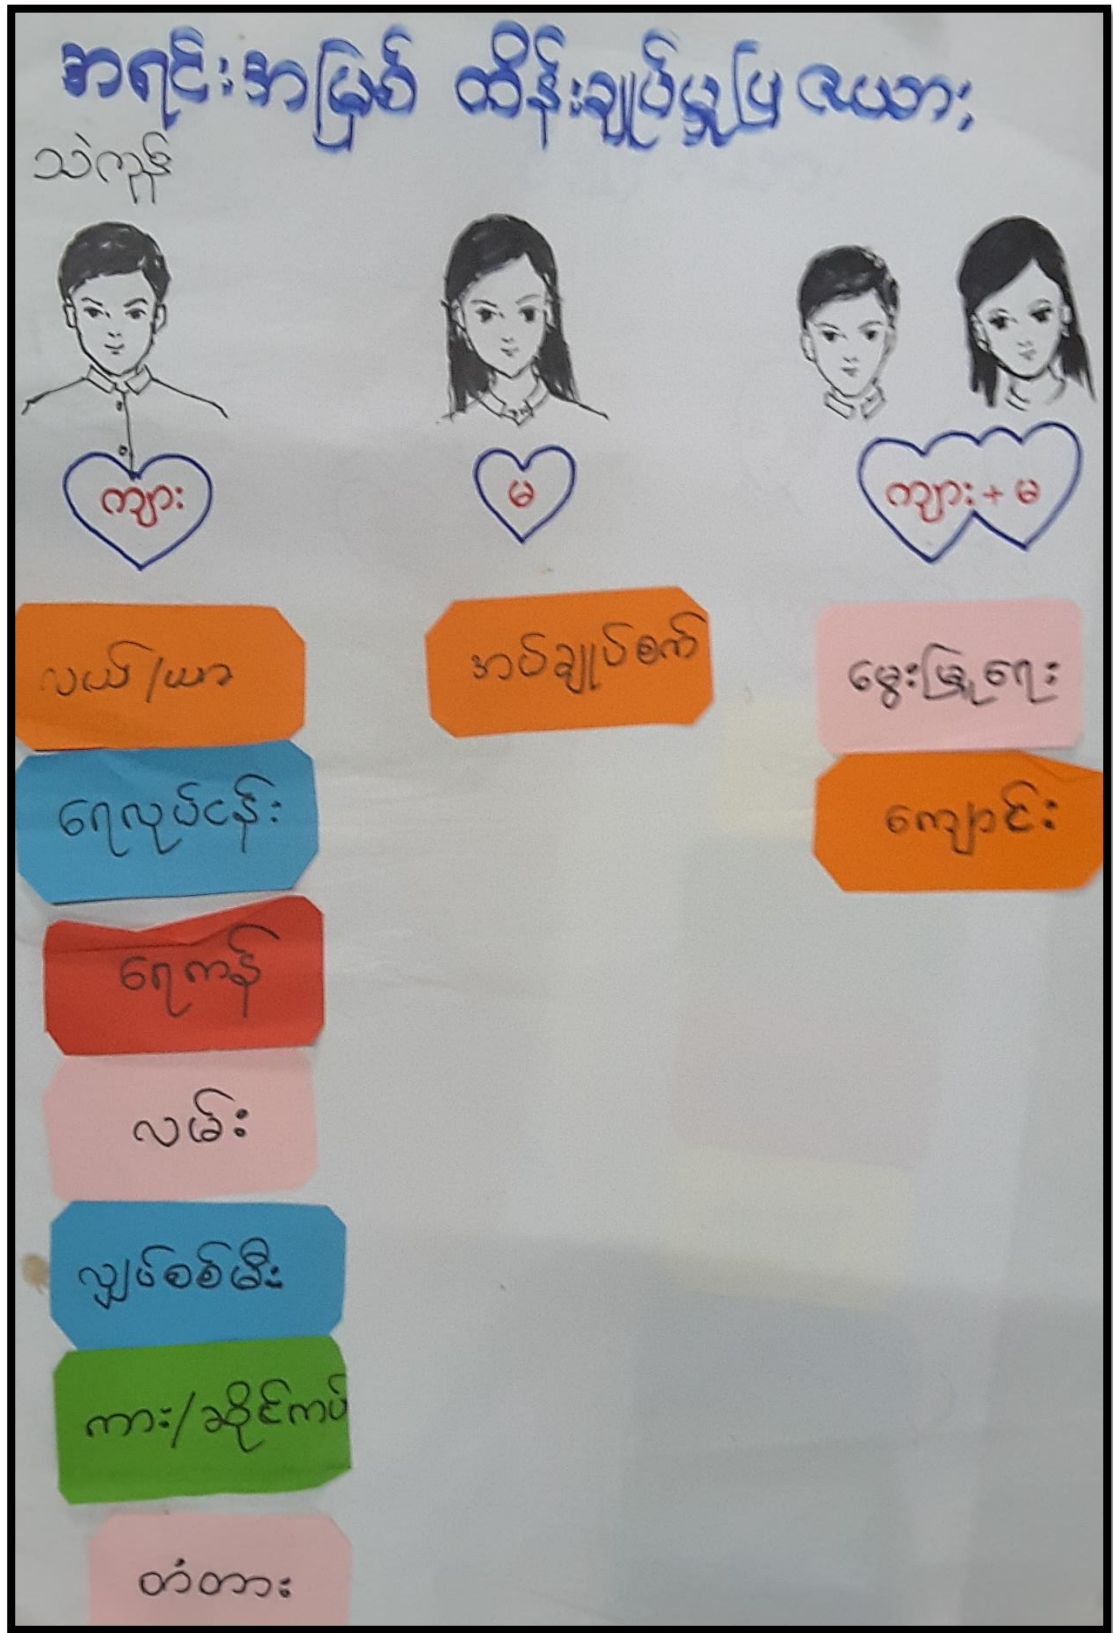 အရင်းအမြစ် ထိန်းချုပ်မှုပြ ဇယား
သဲကုန်
ကျား
မ
ကျား + မ
လယ်/ယာ
ရေလုပ်ငန်း
ရေကန်
လမ်း
လျှပ်စစ်မီး
ကား/ဆိုင်ကယ်
တံတား
အပ်ချုပ်စက်
မွေးမြူရေး
ကျောင်း